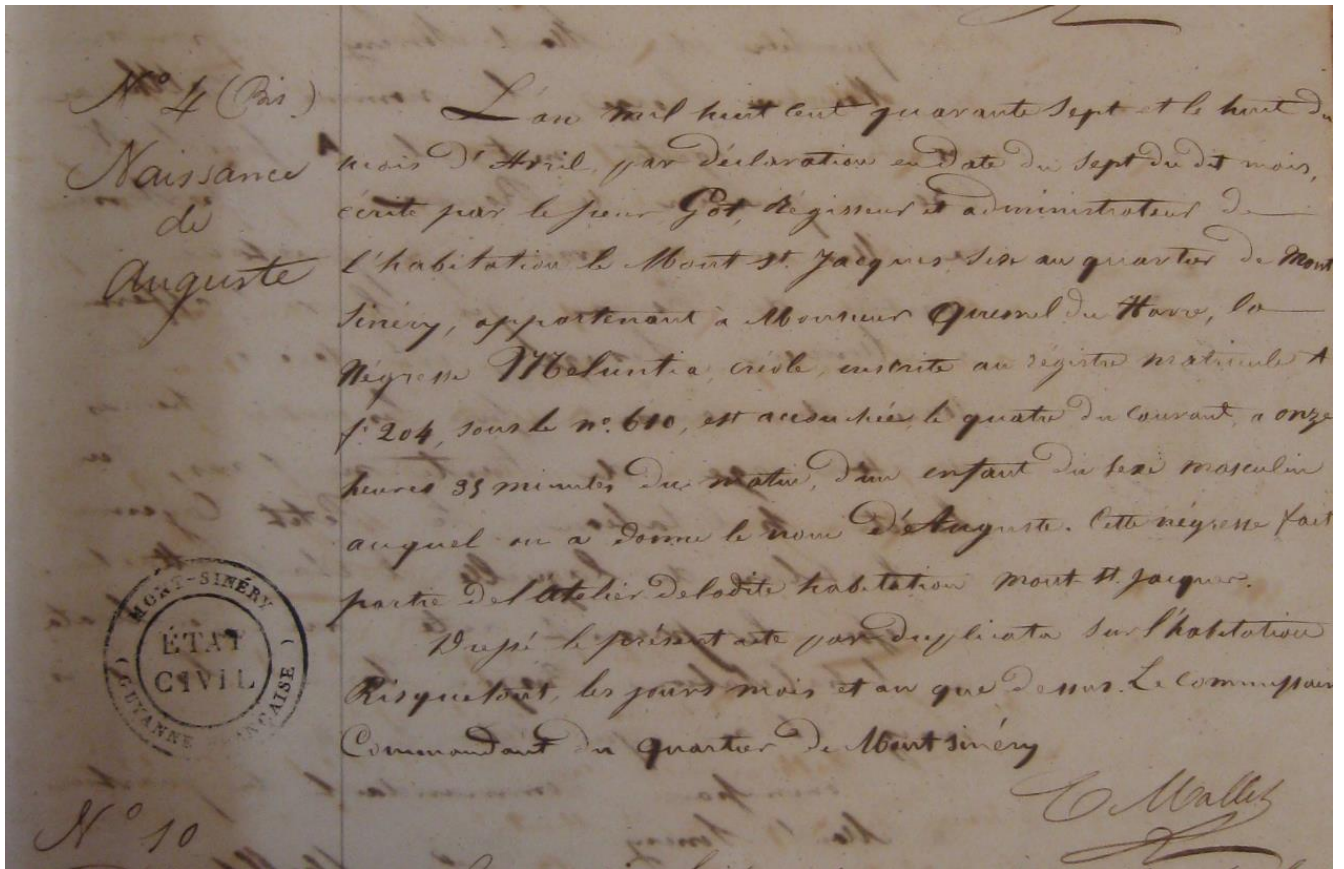 N° 4 (Bis)
Naissance
de
Auguste
L'an mil huit cent quarante sept et le huit du
mois d'Avril, par déclaration en date du sept du dit mois,
écrite par le sieur Got, Régisseur et administrateur de
l'habitation le Mont St. Jacques, sise au quartier de Mont
Sinéry, appartenant à Monsieur Quesnel du Havre, la
Négresse Meluntia, créole, inscrite au régistre matricule A
f° 204, sous le n° 610, est accouchée, le quatre du courant, à onze
heures 35 minutes du matin, d'un enfant du sexe masculin
auquel on a donné le nom d'Auguste. Cette négresse fait
partie de l'Atelier de ladite habitation mont St. Jacques.
Dressé le présent acte par duplicata sur l'habitation
Risquetout, les jours mois et an que dessus. Le Commissaire
Commandant du quartier de Mont sinéry
E Mallet
MONT-SINÉRY
ÉTAT
CIVIL
GUYANNE FRANÇAISE
N° 10